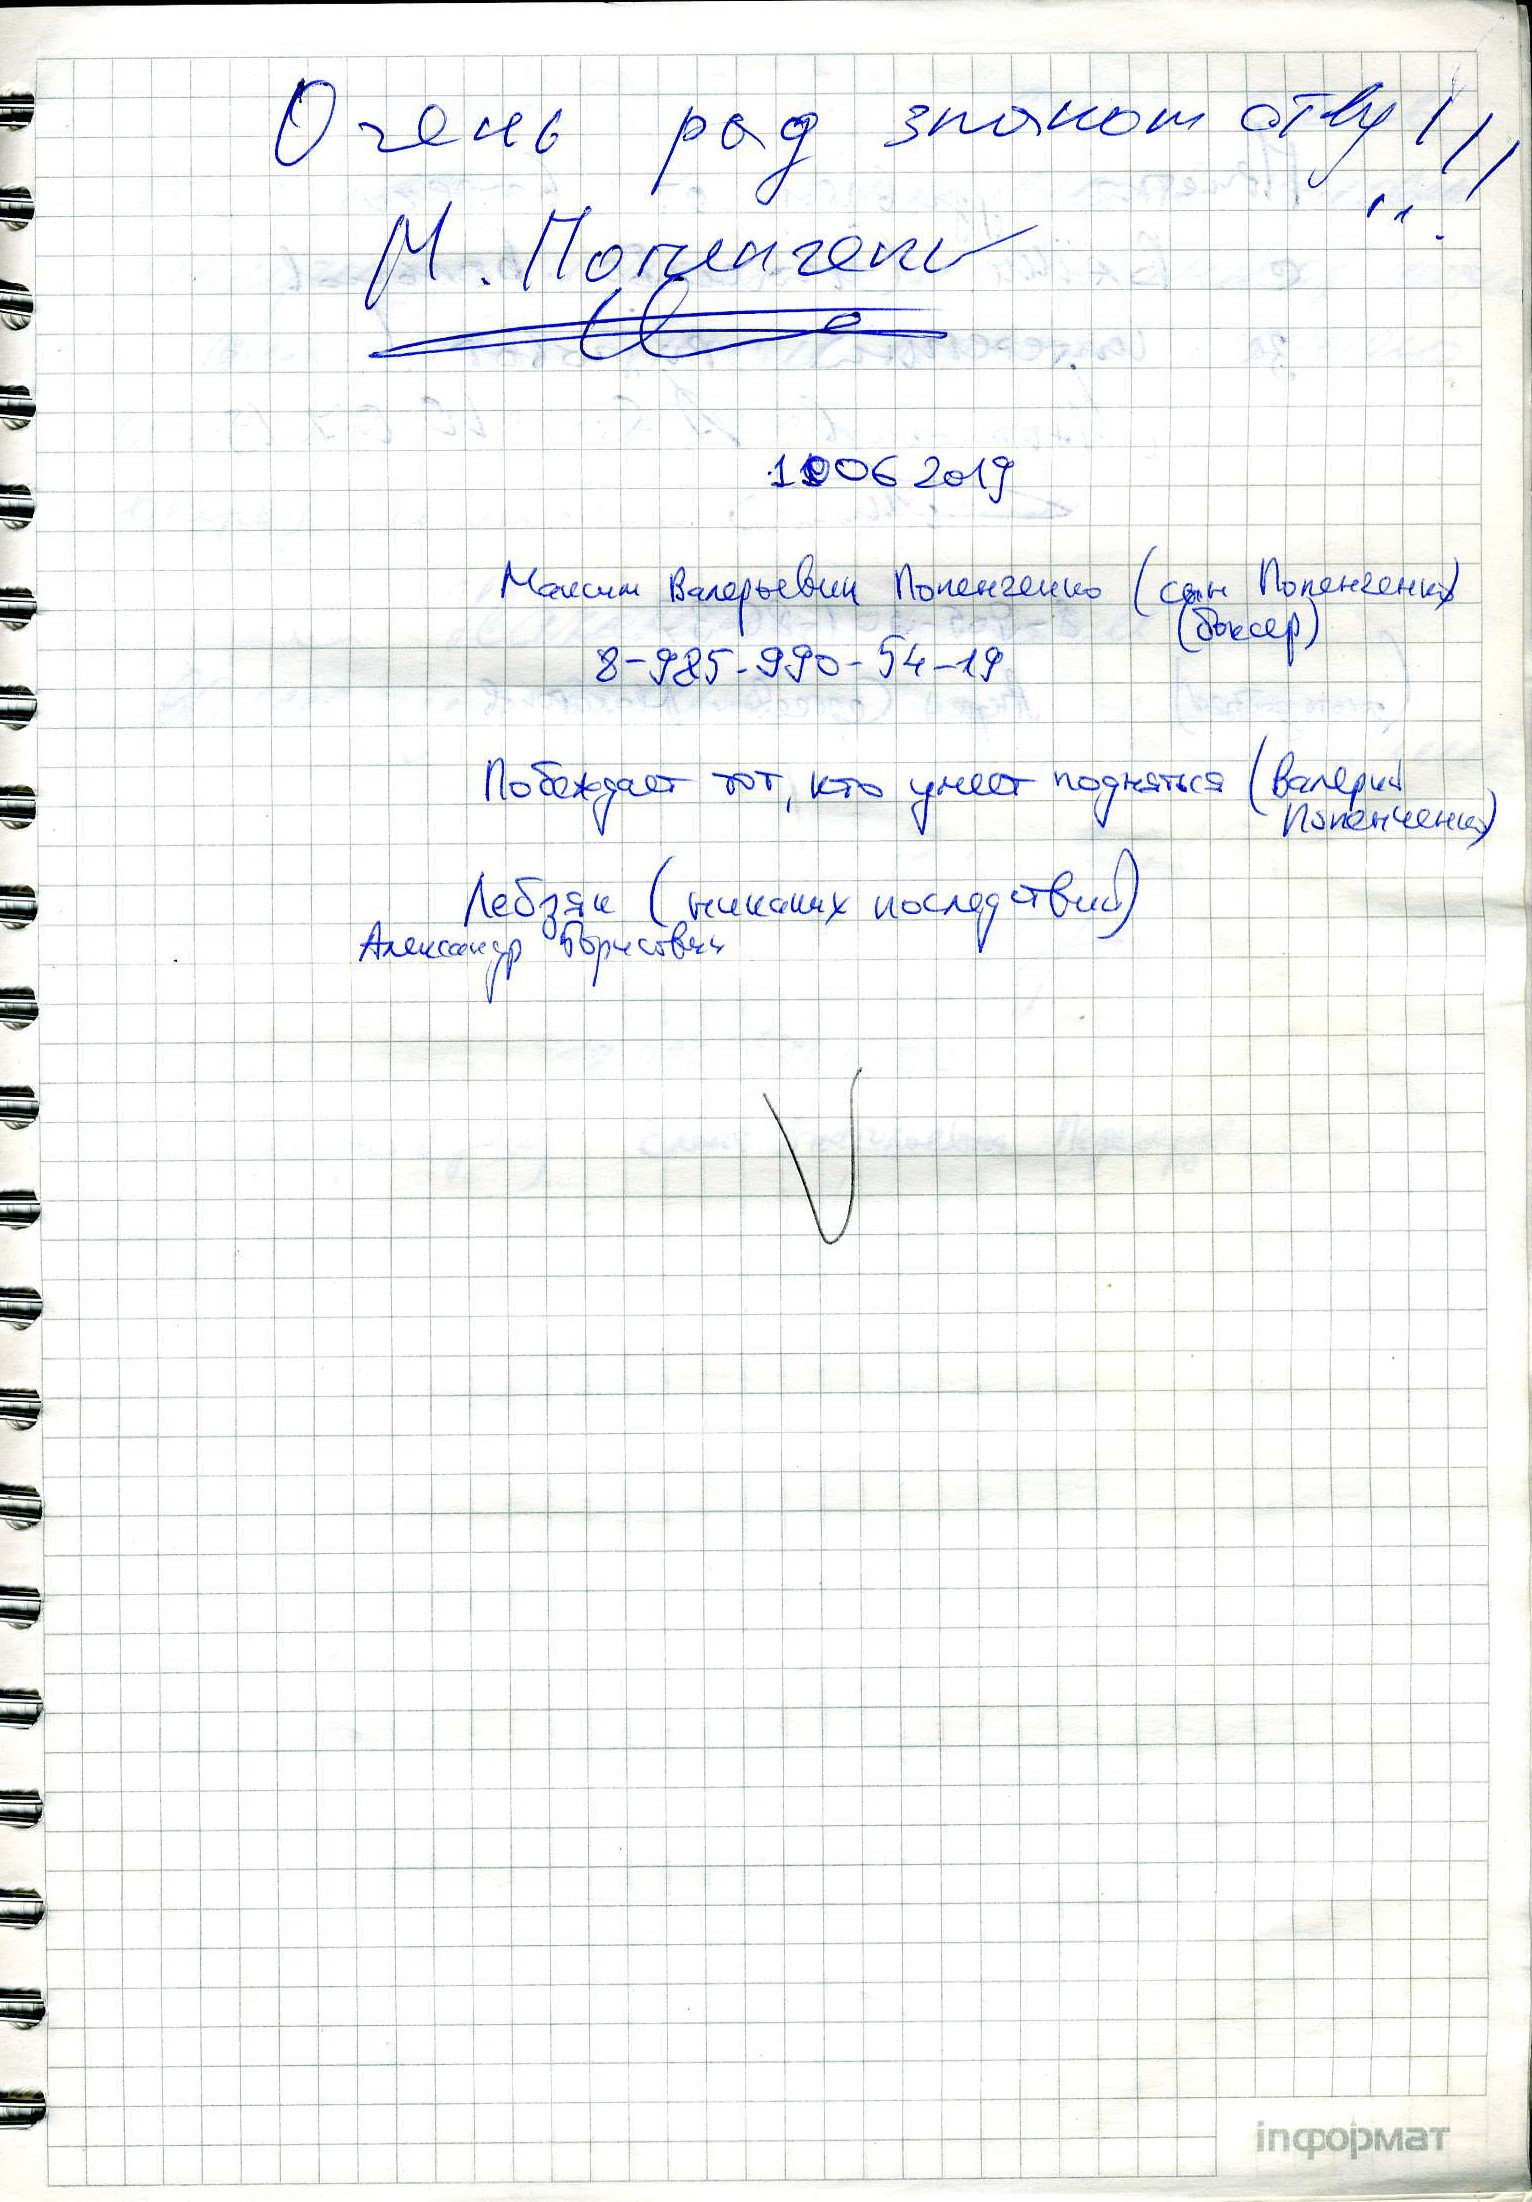 Очень рад знакомству!!!
М. Попенченко
06 2019
Максим Валерьевич Попенченко (сын Попенченко)
(боксер)
8-985-990-54-19
Побеждает тот, кто умеет подняться (Валерий
Попенченко)
Лебзяк (никаких последствий)
Александр Борисович
inформат